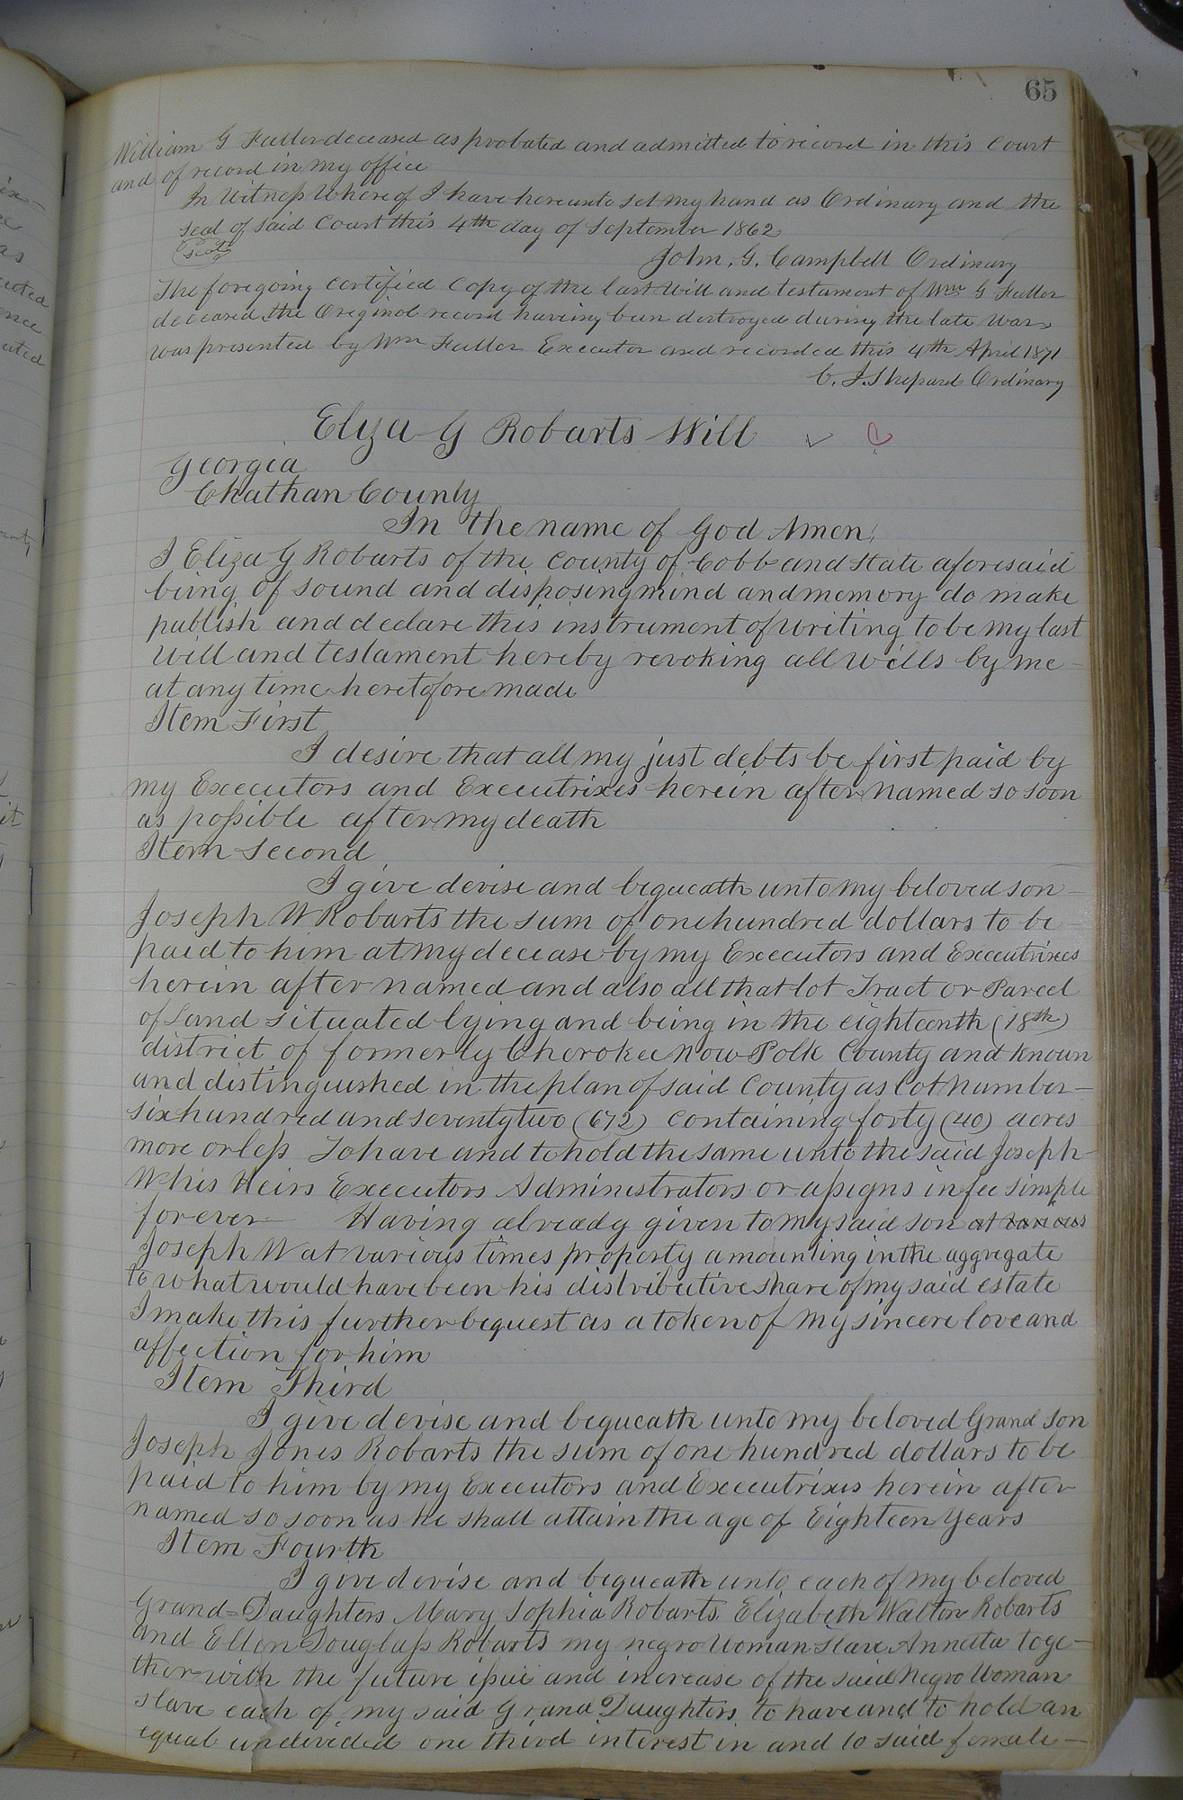 65
William G Fuller deceased as probated and admitted to record in this Court
and of record in my office
In Witness Where of I have hereunto set my hand as Ordinary and the
seal of said Court this 4th day of September 1862
Seal
John. G. Campbell Ordinary
The foregoing certified Copy of the last Will and testament of Wm G Fuller
deceased the Original record having been destroyed during the late War
was presented by Wm Fuller Executor and recorded this 4th April 1871
C. J. Shepard Ordinary
Eliza G Robarts Will
Georgia
Chathan County
In the name of God Amen
I Eliza G Robarts of the County of Cobb and State aforesaid
being of sound and disposing mind and memory do make
publish and declare this instrument of writing to be my last
Will and testament hereby revoking all Wills by me
at any time heretofore made
Item First
I desire that all my just debts be first paid by
my Executors and Executrixes herein after named so soon
as possible after my death
Item Second
I give devise and bequeath unto my beloved son
Joseph W Robarts the sum of one hundred dollars to be
paid to him at my decease by my Executors and Executrixes
herein after named and also all that lot Tract or Parcel
of Land situated lying and being in the eighteenth (18th)
district of formerly Cherokee Now Polk County and known
and distinguished in the plan of said County as Lot number
six hundred and seventy two (672) containing forty (40) acres
more or less To have and to hold the same unto the said Joseph
W his Heirs Executors Administrators or assigns in fee simple
forever Having already given to my said son at various
Joseph W at various times property amounting in the aggregate
to what would have been his distributive share of my said estate
I make this further bequest as a token of my sincere love and
affection for him
Item Third
I give devise and bequeath unto my beloved Grand Son
Joseph Jones Robarts the sum of one hundred dollars to be
paid to him by my Executors and Executrixes herein after
named so soon as he shall attain the age of Eighteen Years
Item Fourth
I give devise and bequeath unto each of my beloved
Grand=Daughters Mary Sophia Robarts Elizabeth Walton Robarts
and Ellen Douglass Robarts my negro Woman slave Annetta toge-
ther with the future issue and increase of the said Negro Woman
slave each of my said Grand Daughters to have and to hold an
equal undevided one third interest in and to said female